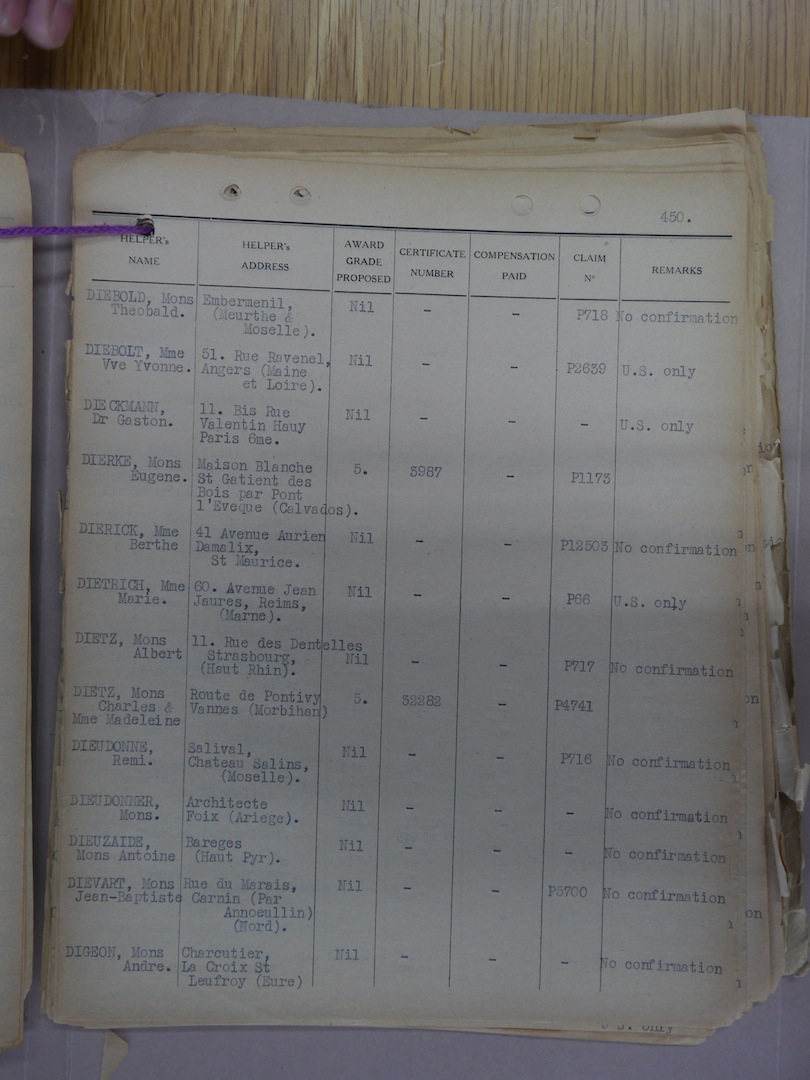 450.
HELPER's NAME | HELPER's ADDRESS | AWARD GRADE PROPOSED | CERTIFICATE NUMBER | COMPENSATION PAID | CLAIM Nº | REMARKS
DIEBOLD, Mons Embermenil, Nil
Theobald. (Meurthe & - - P718 No confirmation
Moselle).
DIEBOLT, Mme 51. Rue Ravenel, Nil
Vve Yvonne. Angers (Maine - - P2639 U.S. only
et Loire).
DIECKMANN, 11. Bis Rue Nil
Dr Gaston. Valentin Hauy - - - U.S. only
Paris 6me.
DIERKE, Mons Maison Blanche 5. 3987 - P1173
Eugene. St Gatient des
Bois par Pont
l'Eveque (Calvados).
DIERICK, Mme 41 Avenue Aurien Nil
Berthe Damalix, - - P12503 No confirmation
St Maurice.
DIETRICH, Mme 60. Avenue Jean Nil
Marie. Jaures, Reims, - - P66 U.S. only
(Marne).
DIETZ, Mons 11. Rue des Dentelles
Albert Strasbourg, Nil - - P717 No confirmation
(Haut Rhin).
DIETZ, Mons Route de Pontivy 5. 32282 - P4741
Charles & Vannes (Morbihan)
Mme Madeleine
DIEUDONNE, Salival, Nil
Remi. Chateau Salins, - - P716 No confirmation
(Moselle).
DIEUDONNER, Architecte Nil
Mons. Foix (Ariege). - - - No confirmation
DIEUZAIDE, Bareges Nil
Mons Antoine (Haut Pyr). - - - No confirmation
DIEVART, Mons Rue du Marais, Nil - - P5700 No confirmation
Jean-Baptiste Carnin (Par
Annoeullin)
(Nord).
DIGEON, Mons Charcutier, Nil
Andre. La Croix St - - - No confirmation
Leufroy (Eure)
U.S. only